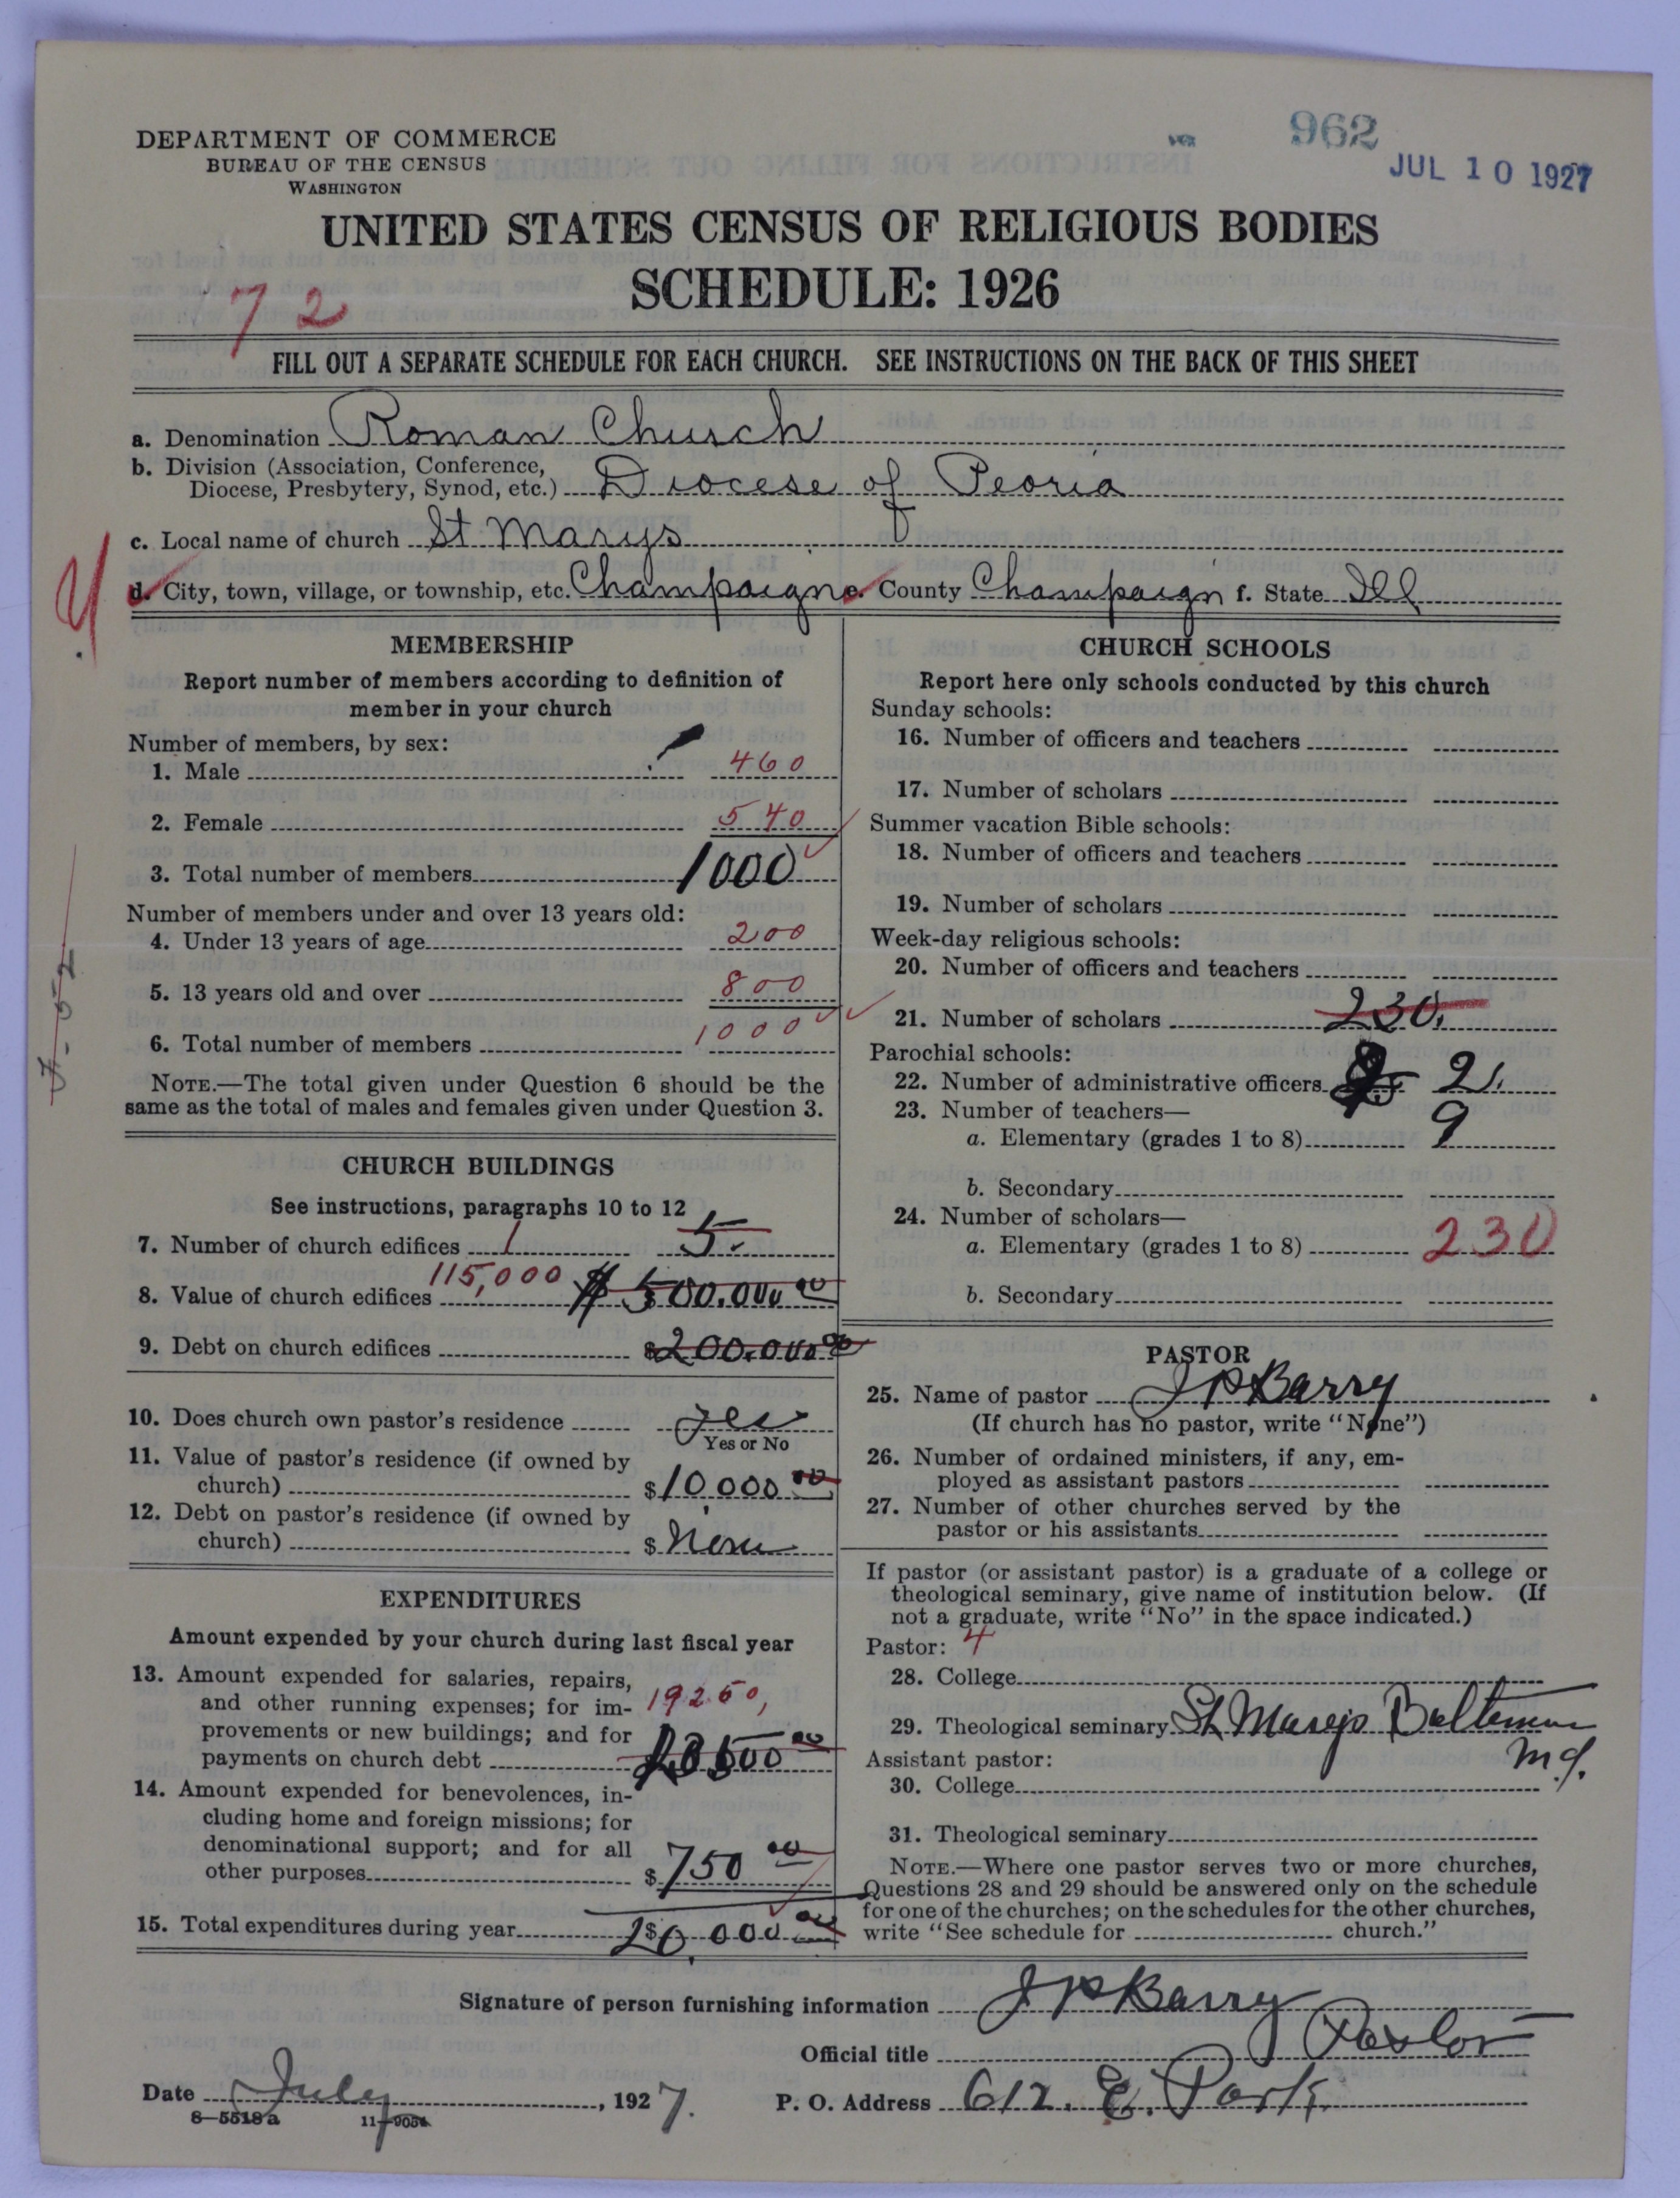 962
JUL 10 1927
DEPARTMENT OF COMMERCE
BUREAU OF THE CENSUS
WASHINGTON
UNITED STATES CENSUS OF RELIGIOUS BODIES
SCHEDULE: 1926
72
FILL OUT A SEPARATE SCHEDULE FOR EACH CHURCH. SEE INSTRUCTIONS ON THE BACK OF THIS SHEET
a. Denomination Roman Church
b. Division (Association, Conference,
Diocese, Presbytery, Synod, etc.) Diocese of Peoria
c. Local name of church St Marys
d. City, town, village, or township, etc. Champaign e. County Champaign f. State Ill
MEMBERSHIP
Report number of members according to definition of
member in your church
Number of members, by sex:
1. Male 460
2. Female 540
3. Total number of members 1000
Number of members under and over 13 years old:
4. Under 13 years of age 200
5. 13 years old and over 800
6. Total number of members 1000
NOTE.—The total given under Question 6 should be the
same as the total of males and females given under Question 3.
CHURCH BUILDINGS
See instructions, paragraphs 10 to 12
7. Number of church edifices 1 5.
8. Value of church edifices 115,000 $500.000 00
9. Debt on church edifices $200.000 00
10. Does church own pastor's residence yes
Yes or No
11. Value of pastor's residence (if owned by
church) $10,000 00
12. Debt on pastor's residence (if owned by
church) $ None
EXPENDITURES
Amount expended by your church during last fiscal year
13. Amount expended for salaries, repairs,
and other running expenses; for im- 19250,
provements or new buildings; and for
payments on church debt
14. Amount expended for benevolences, in-
cluding home and foreign missions; for
denominational support; and for all
other purposes $750 00
15. Total expenditures during year $20,000 00
CHURCH SCHOOLS
Report here only schools conducted by this church
Sunday schools:
16. Number of officers and teachers
17. Number of scholars
Summer vacation Bible schools:
18. Number of officers and teachers
19. Number of scholars
Week-day religious schools:
20. Number of officers and teachers
21. Number of scholars 230.
Parochial schools:
22. Number of administrative officers 2.
23. Number of teachers—
a. Elementary (grades 1 to 8) 9
b. Secondary
24. Number of scholars—
a. Elementary (grades 1 to 8) 230
b. Secondary
PASTOR
25. Name of pastor J P Barry
(If church has no pastor, write "None")
26. Number of ordained ministers, if any, em-
ployed as assistant pastors
27. Number of other churches served by the
pastor or his assistants
If pastor (or assistant pastor) is a graduate of a college or
theological seminary, give name of institution below. (If
not a graduate, write "No" in the space indicated.)
Pastor: 4
28. College
29. Theological seminary St Marys Baltimore
Md.
Assistant pastor:
30. College
31. Theological seminary
NOTE.—Where one pastor serves two or more churches,
Questions 28 and 29 should be answered only on the schedule
for one of the churches; on the schedules for the other churches,
write "See schedule for church."
Signature of person furnishing information J P Barry
Official title Pastor
Date July, 1927. P. O. Address 612. E. Park.
8—5518a 11—9054